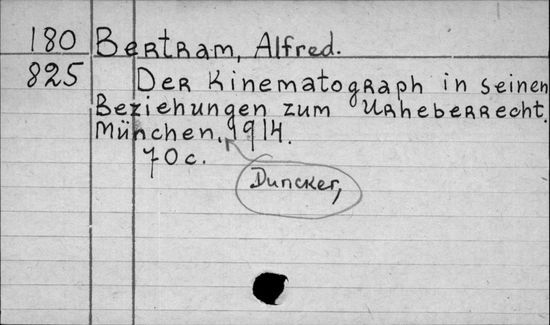 180 Bertram, Alfred.
825 Der Kinematograph in seinen
Beziehungen zum Urheberrecht.
München, 1914.
70 c.
Duncker,